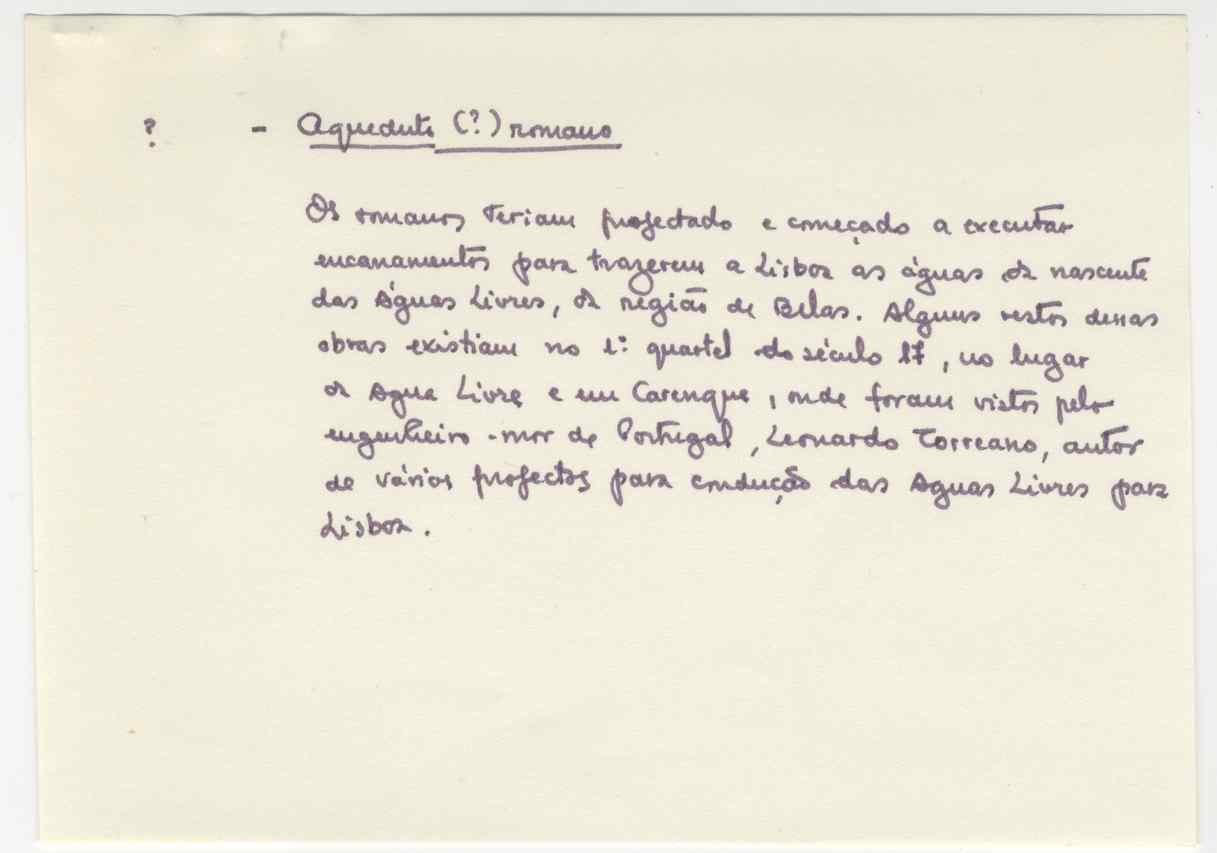 ? - Aqueduto (?) romano
Os romanos teriam projectado e começado a executar
encanamentos para trazerem a Lisboa as águas da nascente
das Águas Livres, da região de Belas. Alguns restos dessas
obras existiam no 1º quartel do século 17, no lugar
da Agua Livre e em Carenque, onde foram vistos pelo
engenheiro-mor de Portugal, Leonardo Torreano, autor
de vários projectos para condução das Aguas Livres para
Lisboa.